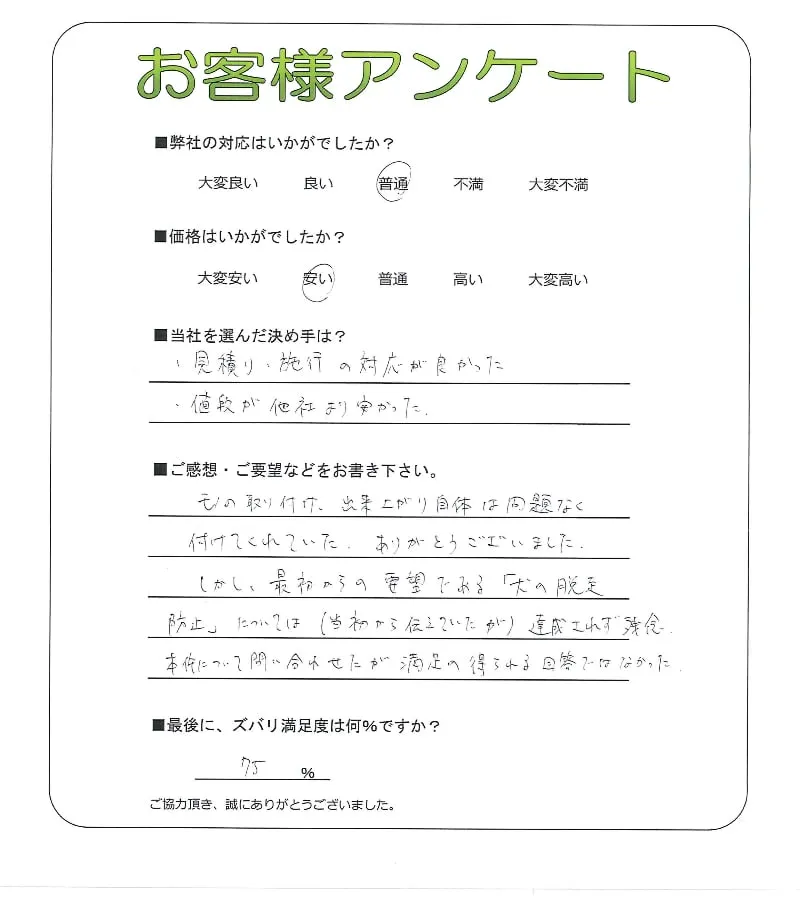 お客様アンケート
■弊社の対応はいかがでしたか？
大変良い 良い 普通 不満 大変不満
■価格はいかがでしたか？
大変安い 安い 普通 高い 大変高い
■当社を選んだ決め手は？
・見積り・施行の対応が良かった
・値段が他社より安かった.
■ご感想・ご要望などをお書き下さい。
モノの取り付け、出来上がり自体は問題なく
付けてくれていた. ありがとうございました.
しかし、最初からの要望である「犬の脱走
防止」については(当初から伝えていたが)達成されず残念.
本件について問い合わせたが満足の得られる回答ではなかった.
■最後に、ズバリ満足度は何%ですか？
75 %
ご協力頂き、誠にありがとうございました。